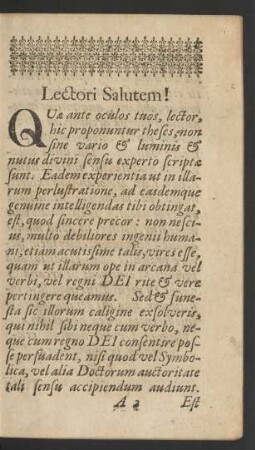 Lectori Salutem!
QUæ ante oculos tuos, lector,
hic proponuntur theses, non
sine vario & luminis &
nutus divini sensu experto scriptæ
sunt. Eadem experientia ut in illa-
rum perlustratione, ad easdemque
genuine intelligendas tibi obtingat,
est, quod sincere precor: non nesci-
us, multò debiliores ingenii huma-
ni, etiam acutissime talis, vires esse,
quam ut illarum ope in arcana vel
verbi, vel regni DEI rite & vere
pertingere queamus. Sed & fune-
sta sic illorum caligine exsolveris,
qui nihil sibi neque cum verbo, ne-
que cum regno DEI consentire pos-
se persuadent, nisi quod vel Symbo-
lica, vel alia Doctorum auctoritate
tali sensu accipiendum audiunt.
A 2 Est